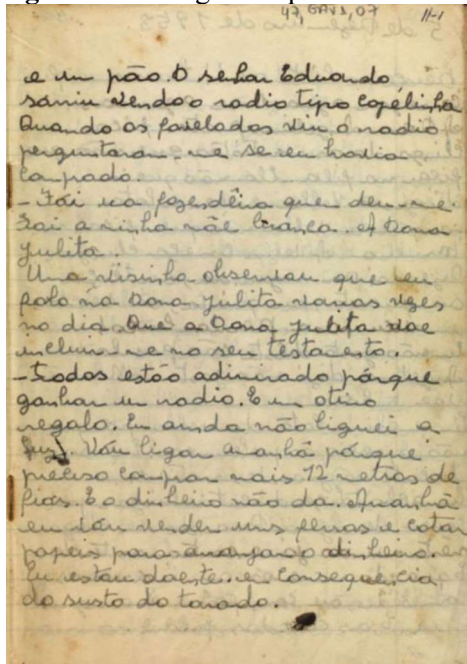 47, GAV3, 07 11-1
e um pão. O senhor Eduardo,
sorriu vendo o radio tipo capélinha
Quando os favelados viu o radio
perguntaram-me se eu havia
comprado.
- Foi uma fazendêira quem deu-me.
Foi a minha mãe branca. A Dona
Julita
Uma visinha observou que eu
falo na Dona Julita varias vezes
no dia. Que a Dona Julita vae
incluir-me no seu testamento.
- Todos estão admirado pórque
ganhar um radio. É um otimo
regalo. Eu ainda não liguei a
luz. Vou ligar amanhã pórque
preciso comprar mais 12 metros de
fios. E o dinheiro não da. Amanhã
eu vou vender uns ferros e catar
papeis para arranjar o dinheiro.
Eu estou doente. e consequencia
do susto do tarado.